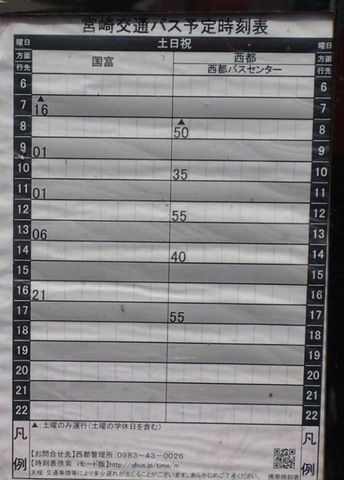 宮崎交通バス予定時刻表
曜日 土日祝 曜日
方面 国富 西都 方面
行先 西都バスセンター 行先
6 6
7 ▲16 7
8 ▲50 8
9 01 9
10 35 10
11 01 11
12 55 12
13 06 13
14 40 14
15 15
16 21 16
17 55 17
18 18
19 19
20 20
21 21
22 22
凡例 ▲:土曜のみ運行(土曜の学休日を含む) 凡例
【お問合せ先】西都管理所:0983-43-0026
【時刻表検索 iモード版】http://qbus.jp/time/m
天候・交通事情等により多少遅れが生じることがございます。あらかじめご了承ください。
携帯時刻表